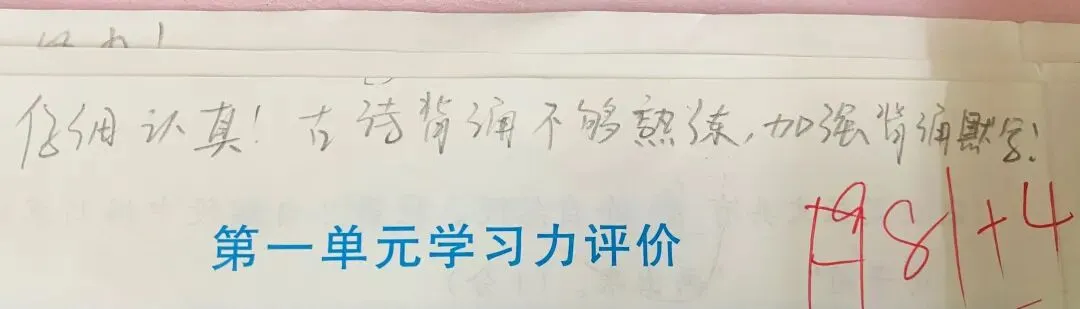 仔细认真！古诗背诵不够熟练，加强背诵默写！
第一单元学习力评价
98+4